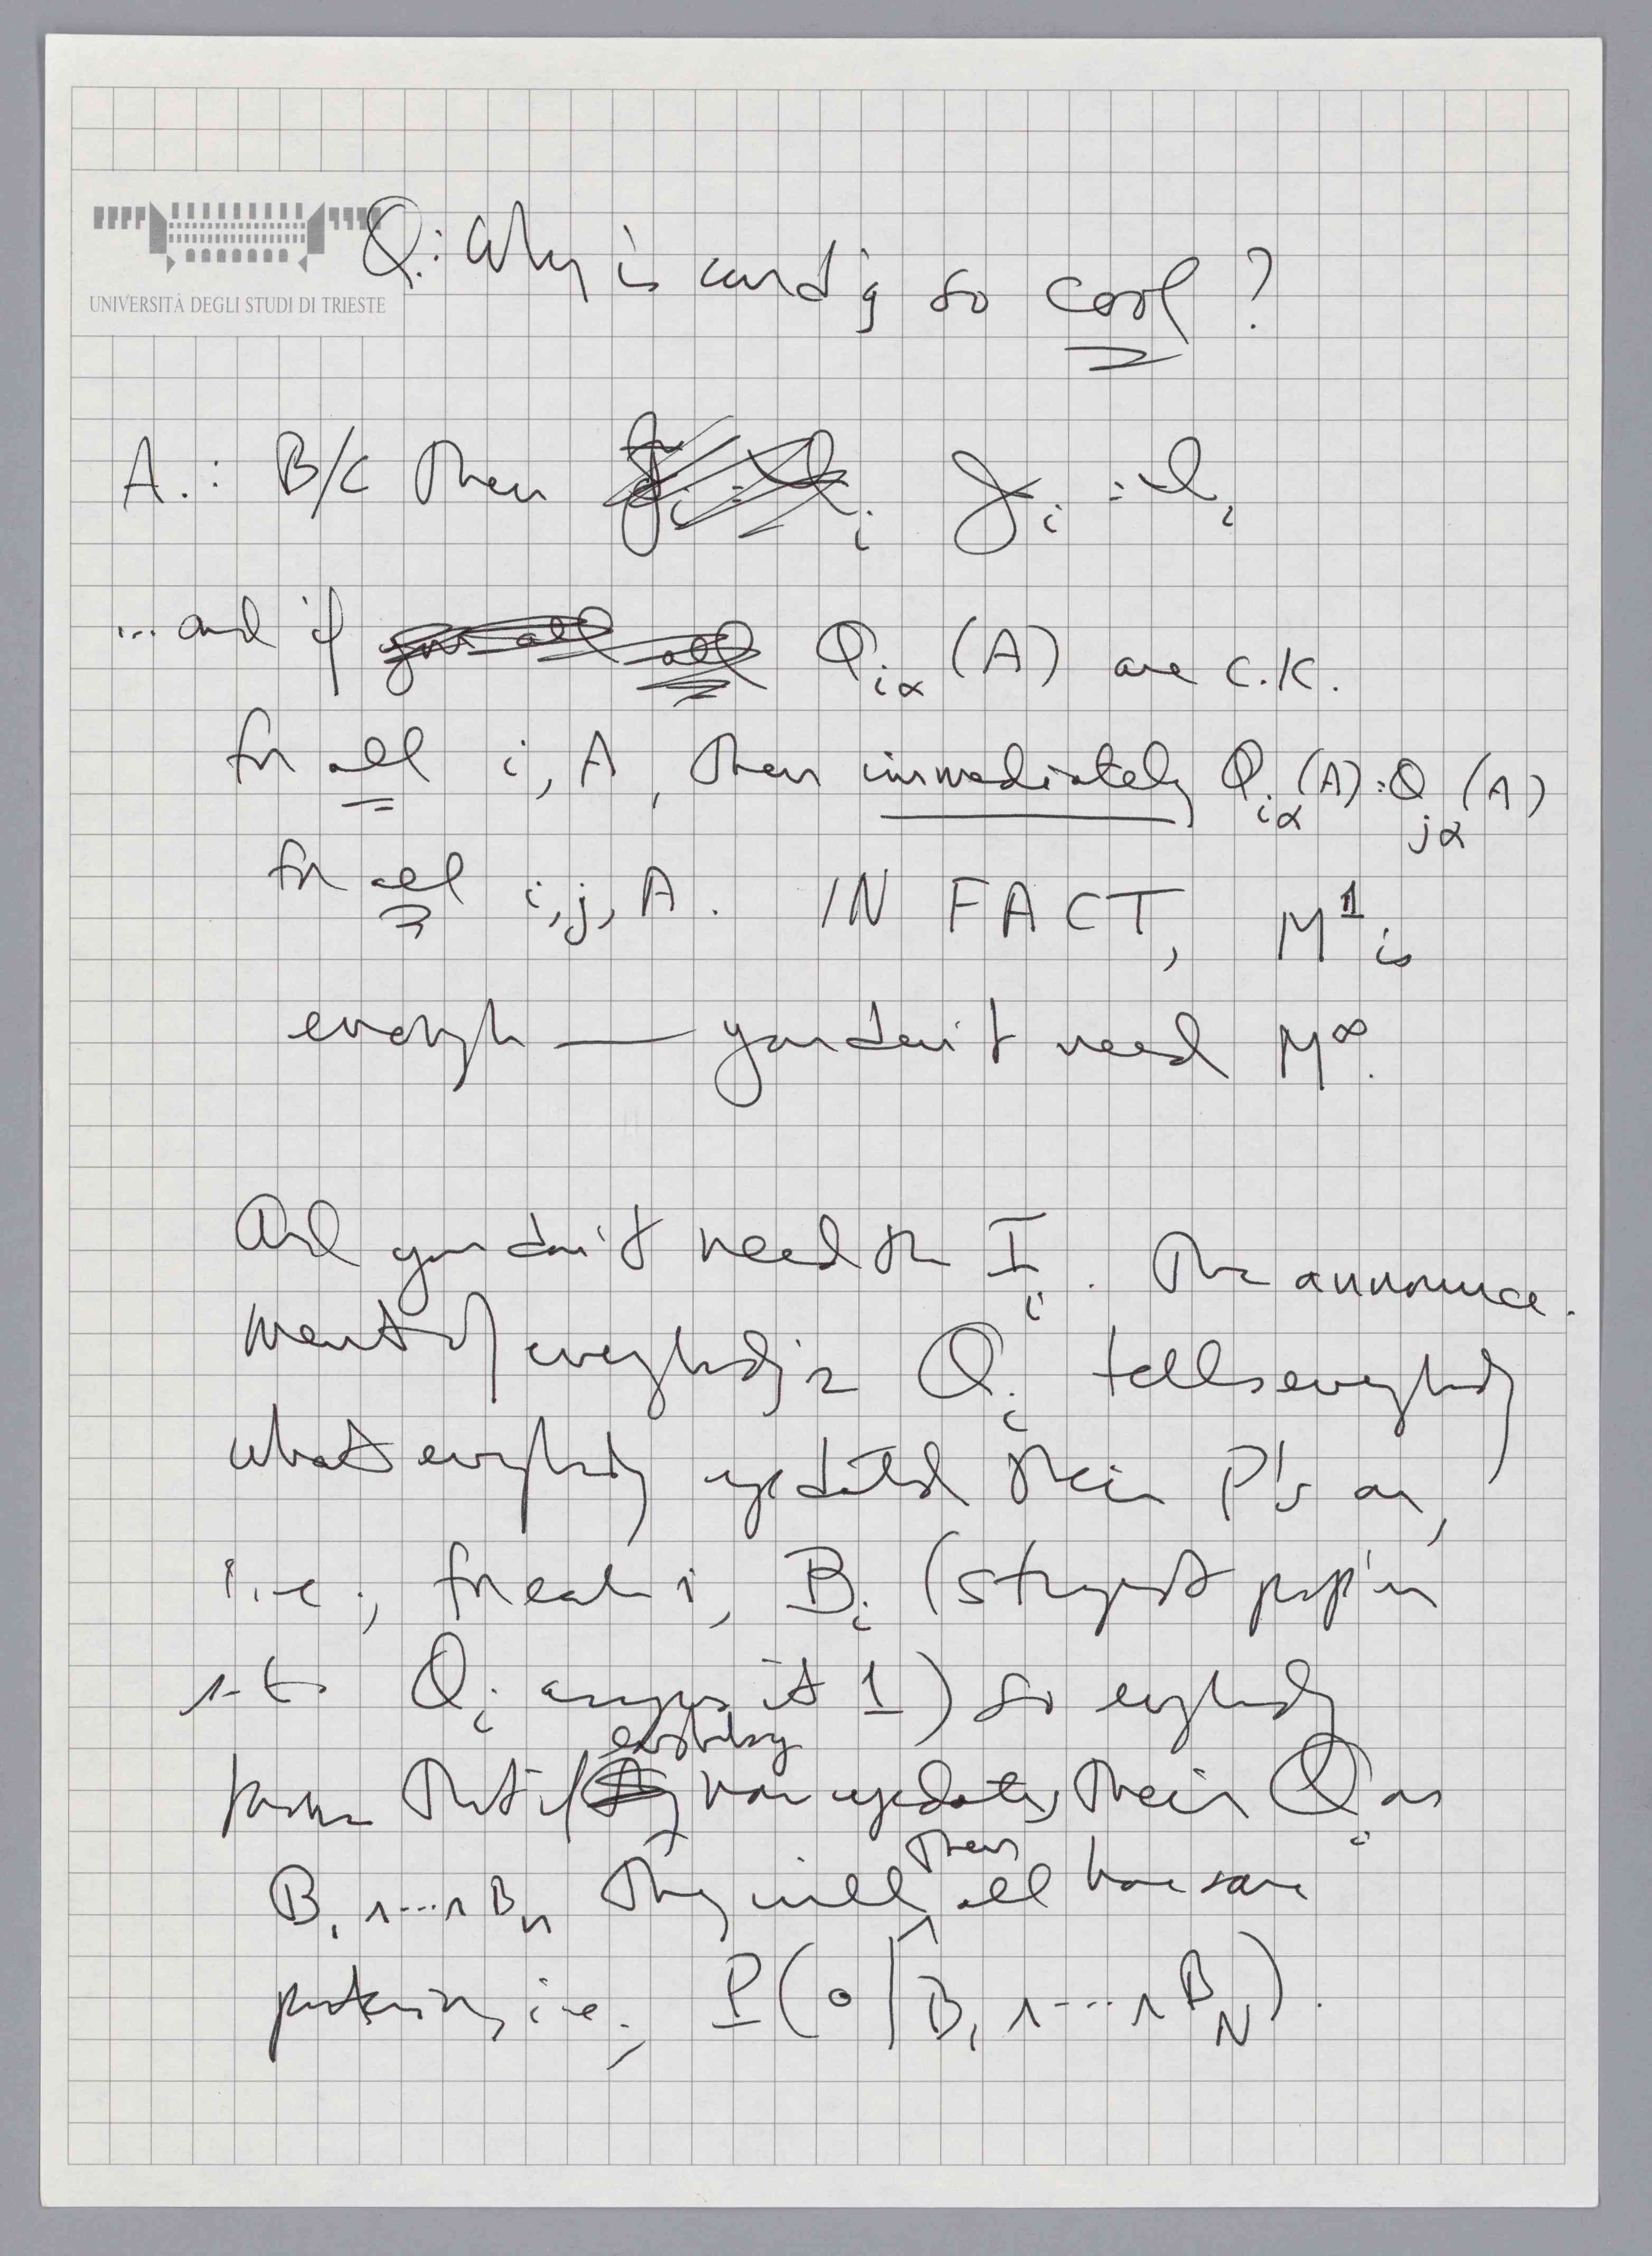 UNIVERSITÀ DEGLI STUDI DI TRIESTE
Q.: Why is cond'g so cool?
A.: B/c then 𝒥ᵢ = ℐᵢ
... and if all Q_iα (A) are c.K.
for all i, A, then immediately Q_iα (A) = Q_jα (A)
for all i, j, A. IN FACT, M¹ is
enough — you don't need M^∞.
And you don't need the I_i. The announce-
ment of everybody's Q_i tells everybody
what everybody updated their P's on,
i.e., for each i, B_i (strongest prop'n
s.t. Q_i assigns it 1) so everybody
knows that if everybody now updates their Q_i on
B₁ ∧ ... ∧ B_n they will then all have same
posterior, i.e., P(∘|B₁ ∧ ... ∧ B_N).